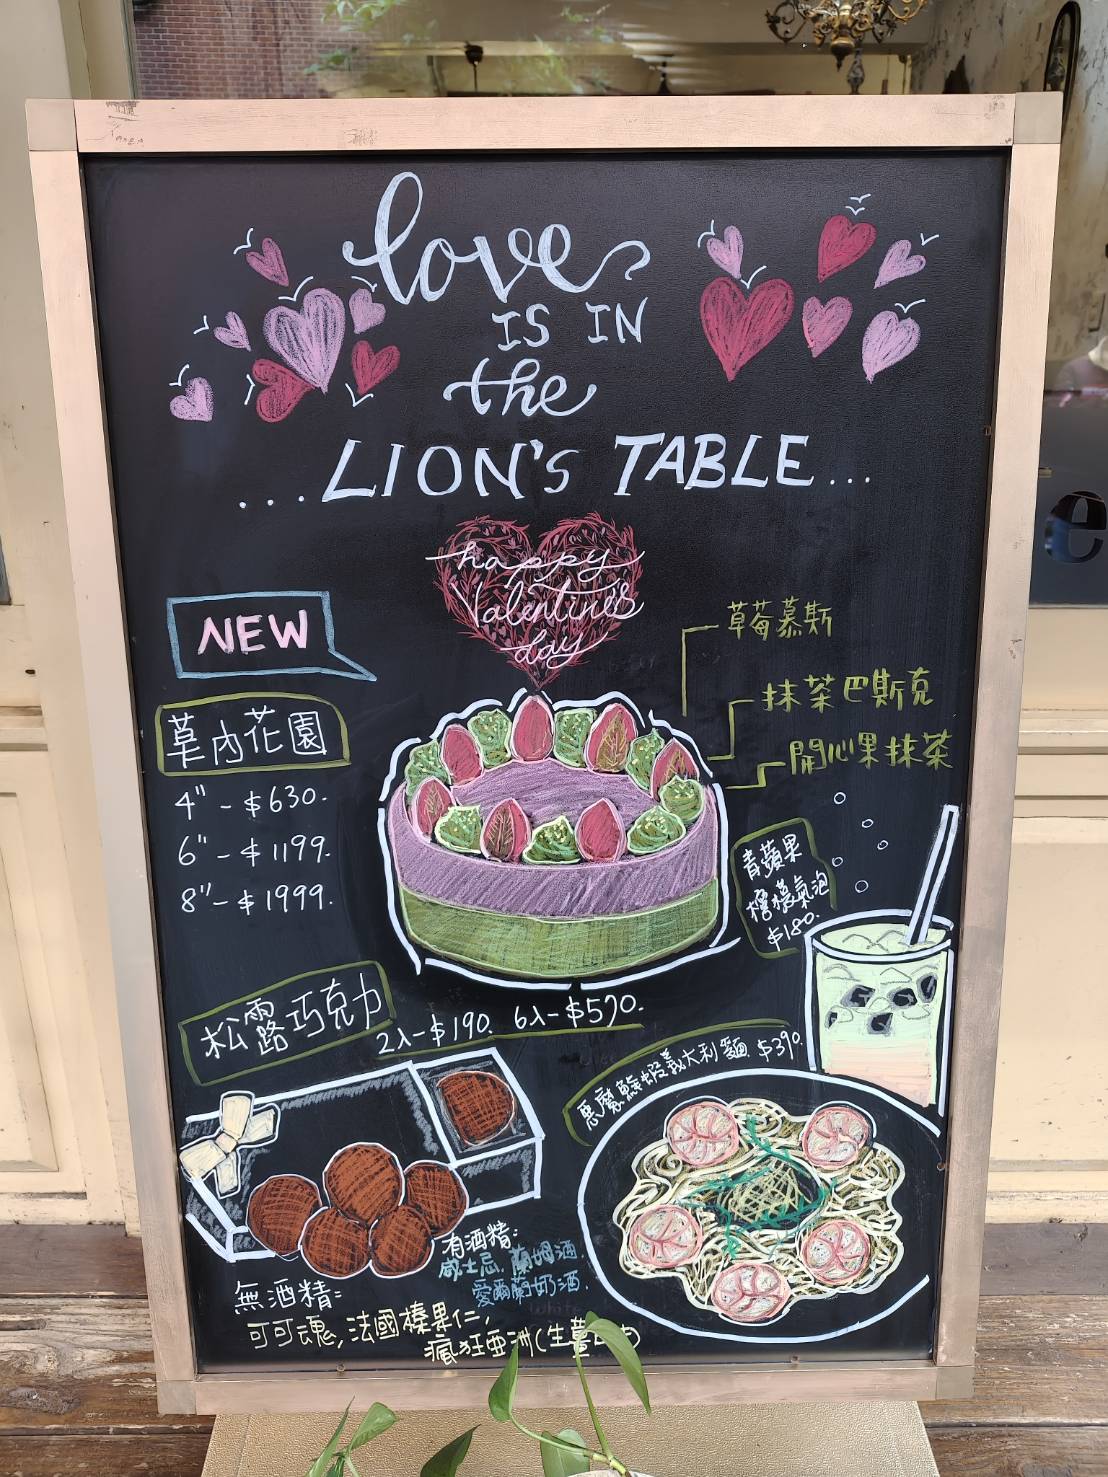 love
IS IN
the
...LION'S TABLE...
happy
Valentine's
day
NEW
草莓慕斯
抹茶巴斯克
開心果抹茶
草內花園
4" - $630.
6" - $1199.
8" - $1999.
青蘋果
檸檬氣泡
$180.
松露巧克力
2入-$190. 6入-$570.
惡魔鮮蝦義大利麵 $390.
有酒精:
威士忌. 蘭姆酒.
愛爾蘭奶酒.
無酒精:
可可魂, 法國榛果仁,
瘋狂亞洲(生薑
e